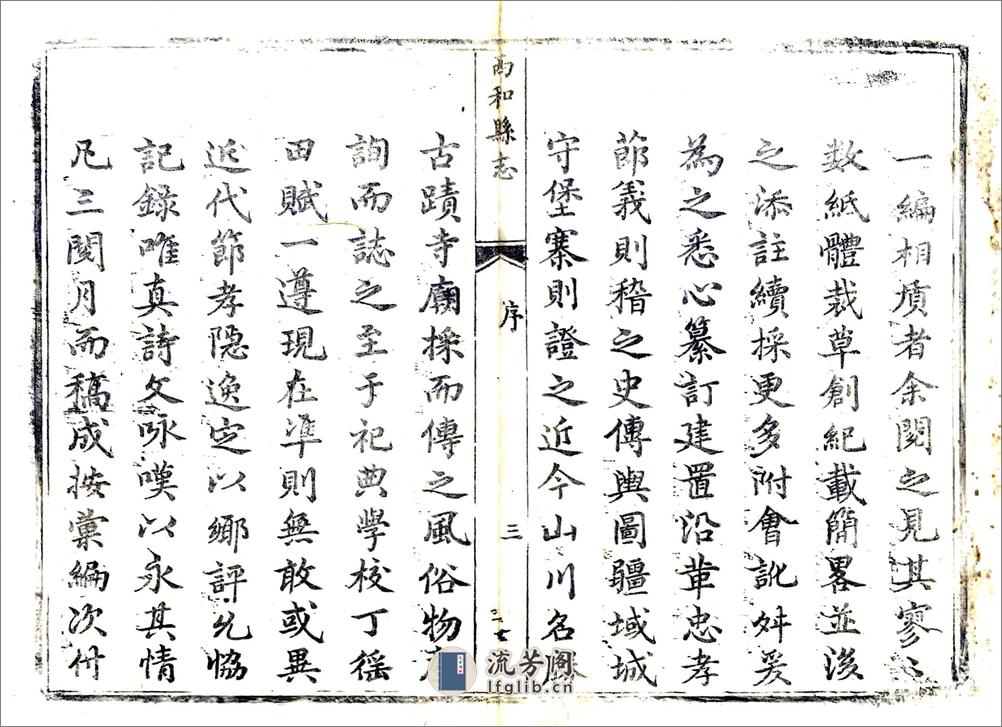 一編相墳者余閱之見其寥々
数紙體裁草創紀載簡畧並後
之添註續採更多附會訛舛爰
為之悉心纂訂建置沿革忠孝
節義則稽之史傳輿圖疆域城
守堡寨則證之近今山川名
西和縣志
序
三
古蹟寺廟採而傳之風俗物
詢而誌之至于祀典學校丁徭
田賦一遵現在凖則無敢或異
近代節孝隐逸定以鄉評允恊
記錄唯真詩文咏嘆以永其情
凡三閱月而稿成按彙編次付
流芳阁
lfglib.cn